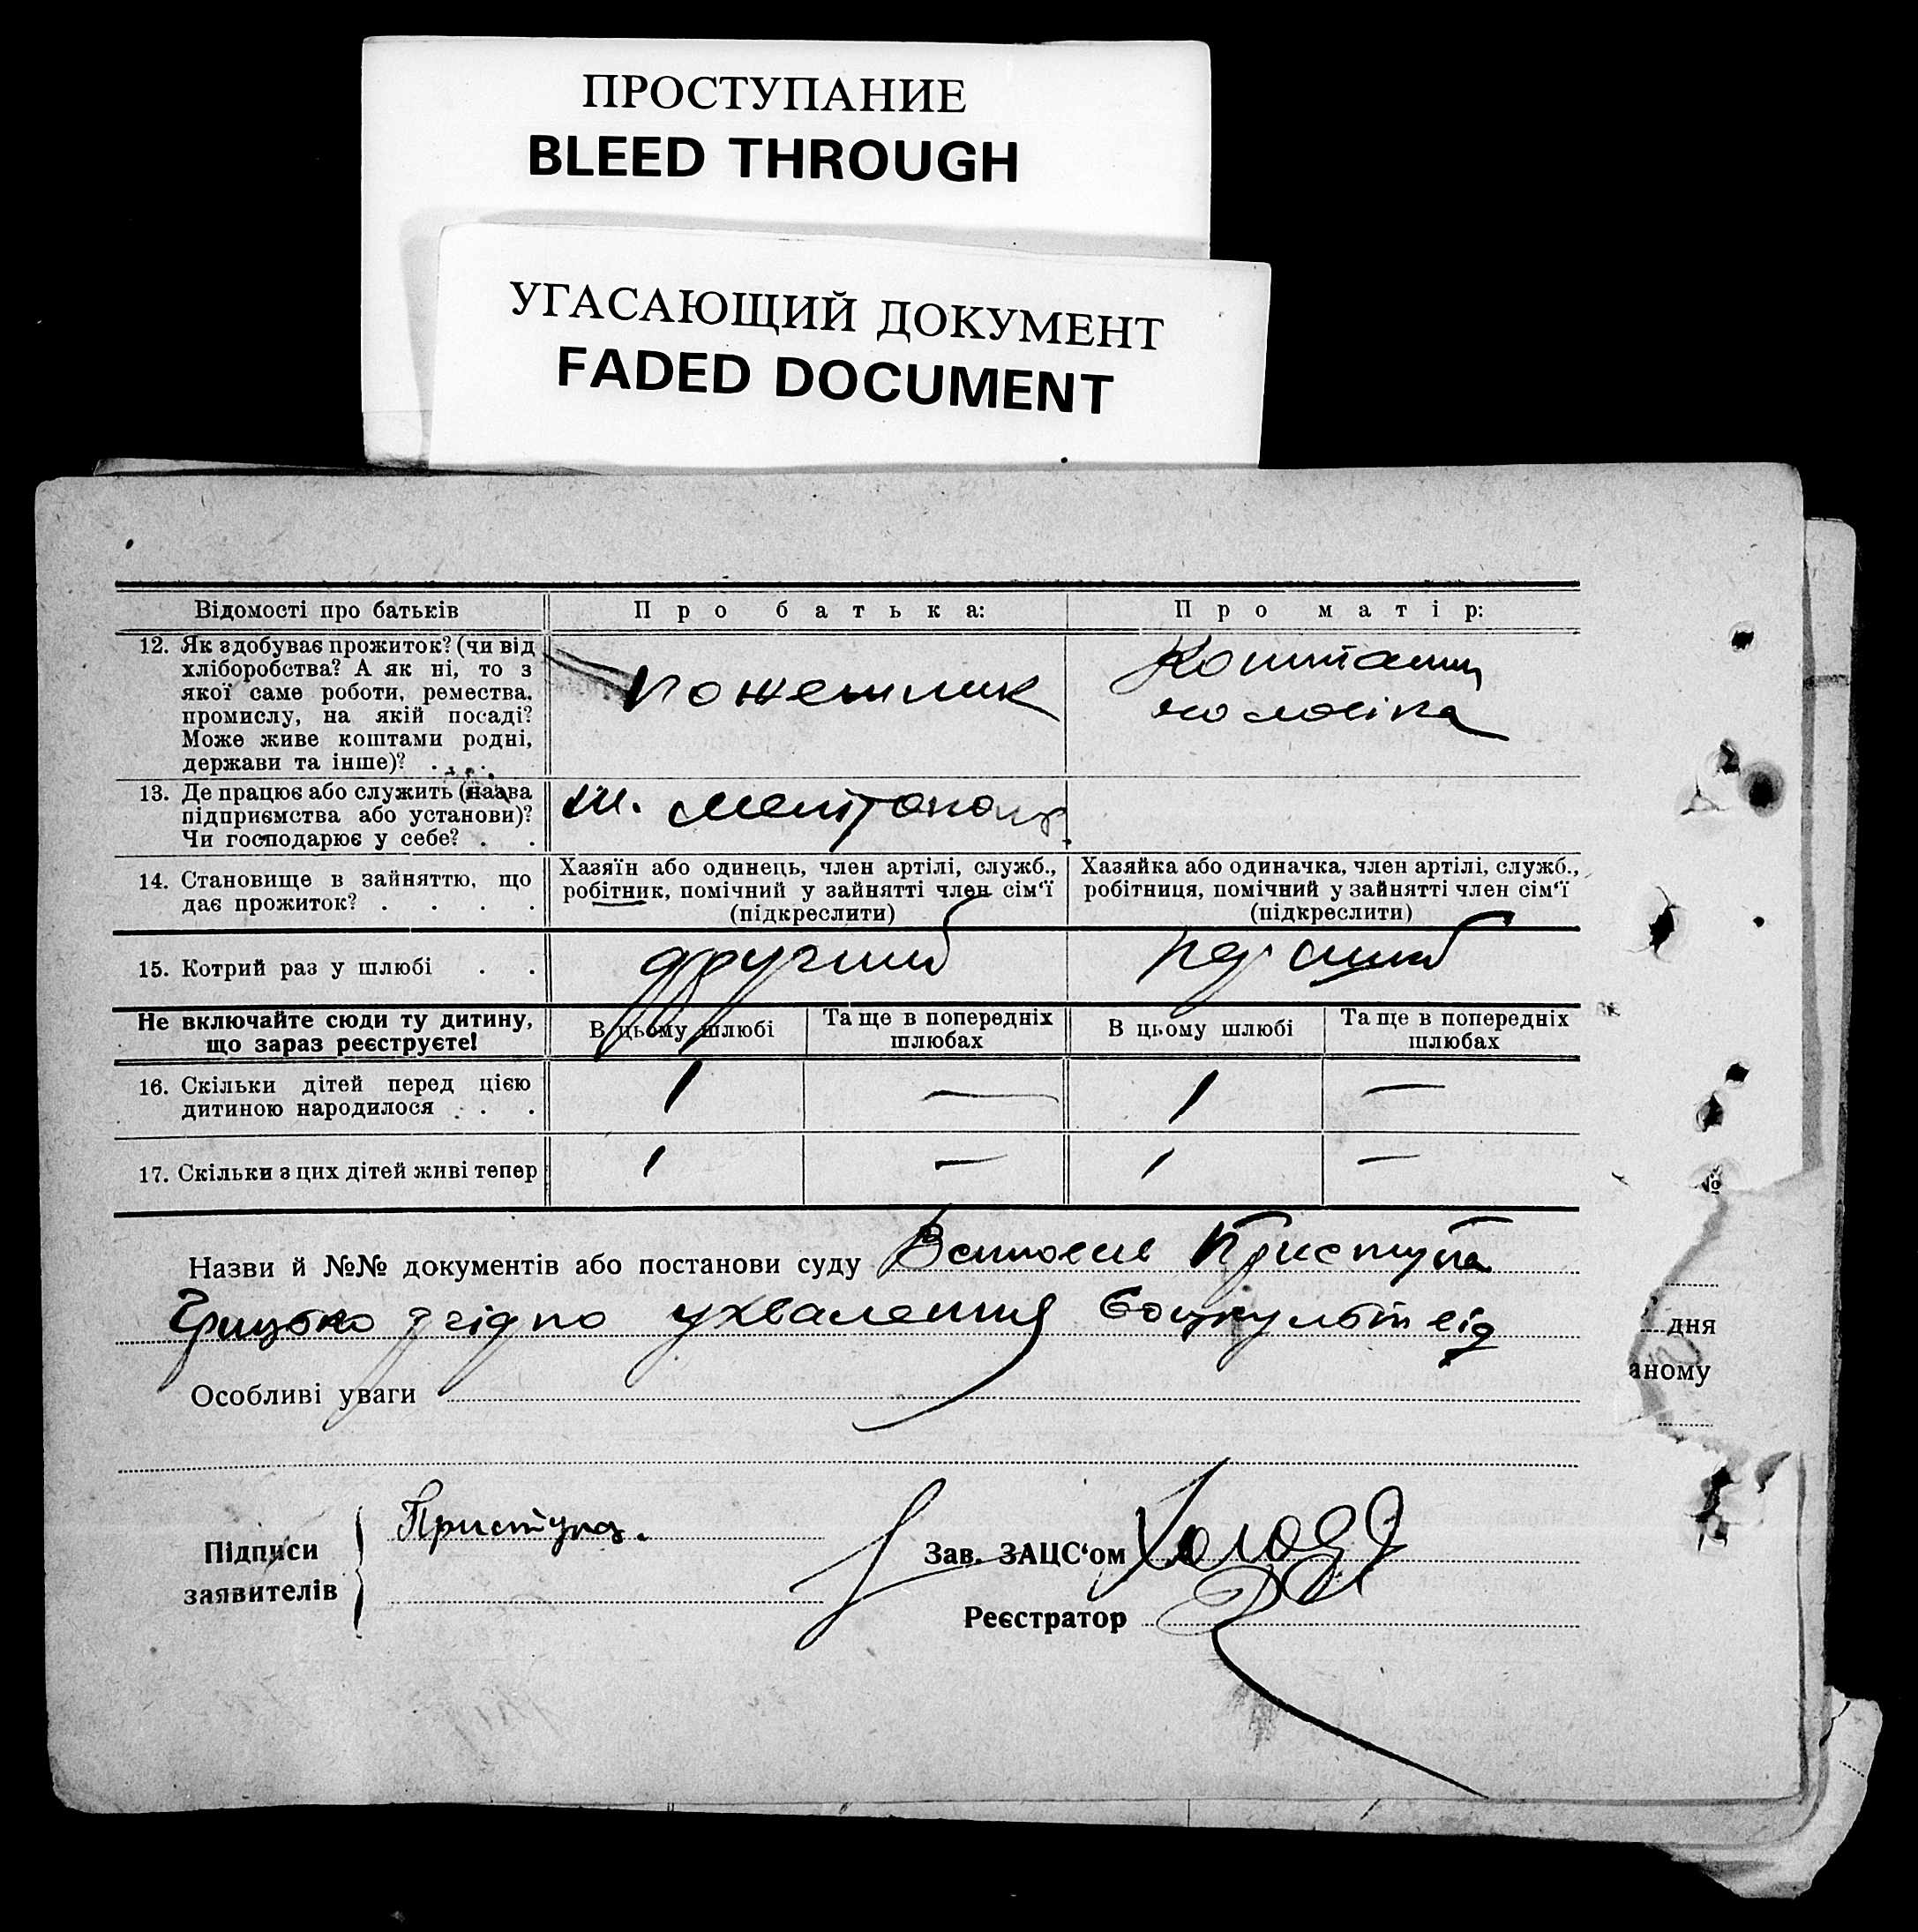 ПРОСТУПАНИЕ
BLEED THROUGH
УГАСАЮЩИЙ ДОКУМЕНТ
FADED DOCUMENT
Відомості про батьків
Про батька:
Про матір:
12. Як здобуває прожиток? (чи від
хліборобства? А як ні, то з
якої саме роботи, ремества,
промислу, на якій посаді?
Може живе коштами родні,
держави та інше)? . . . .
Коштами
чоловіка
13. Де працює або служить (назва
підприємства або установи)?
Чи господарює у себе? . .
14. Становище в зайняттю, що
дає прожиток? . . . .
Хазяїн або одинець, член артілі, служб.,
робітник, помічний у зайнятті член сім'ї
(підкреслити)
Хазяйка або одиначка, член артілі, служб.,
робітниця, помічний у зайнятті член сім'ї
(підкреслити)
15. Котрий раз у шлюбі . .
другий
Не включайте сюди ту дитину,
що зараз реєструєте!
В цьому шлюбі
Та ще в попередніх
шлюбах
В цьому шлюбі
Та ще в попередніх
шлюбах
16. Скільки дітей перед цією
дитиною народилося . . .
1 — 1 —
17. Скільки з цих дітей живі тепер
1 — 1 —
Назви й №№ документів або постанови суду Приступа
Грицько згідно ухвалення
Особливі уваги
Підписи
заявителів
Приступа.
Зав. ЗАЦС'ом
Реєстратор
№
дня
аному